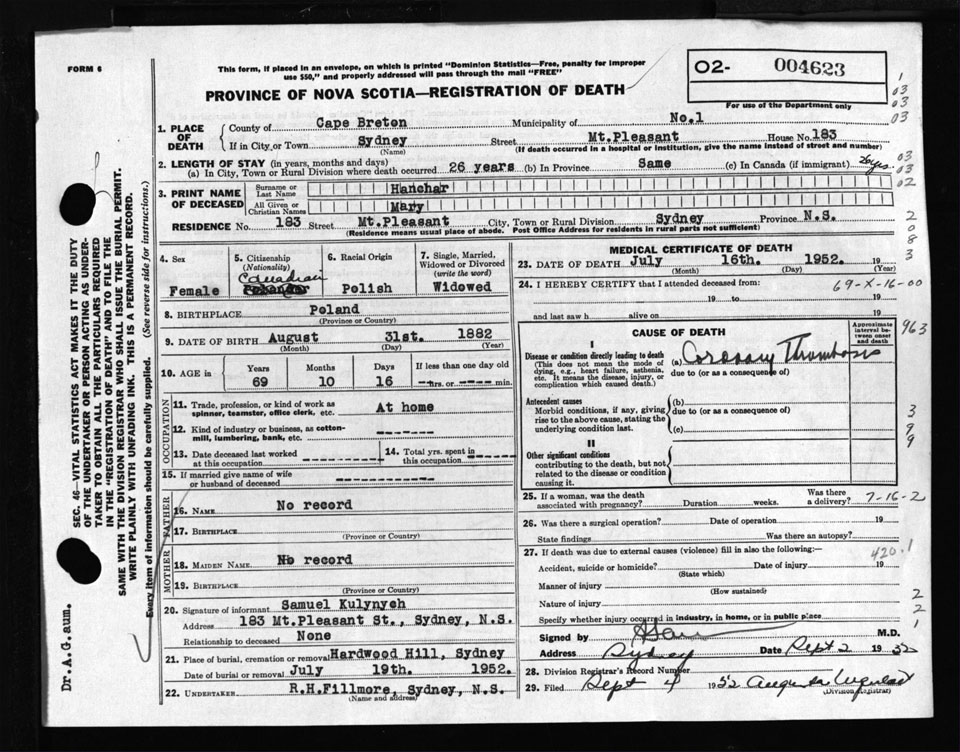 FORM 6
This form, if placed in an envelope, on which is printed "Dominion Statistics—Free, penalty for improper
use $50," and properly addressed will pass through the mail "FREE"
PROVINCE OF NOVA SCOTIA—REGISTRATION OF DEATH
02- 004623
For use of the Department only
1. PLACE OF DEATH
County of Cape Breton Municipality of No.1
If in City or Town Sydney Street Mt.Pleasant House No. 183
(Name) (If death occurred in a hospital or institution, give the name instead of street and number)
2. LENGTH OF STAY (in years, months and days)
(a) In City, Town or Rural Division where death occurred 26 years (b) In Province Same (c) In Canada (if immigrant) 26 yrs.
3. PRINT NAME OF DECEASED
Surname or Last Name Hanchar
All Given or Christian Names Mary
RESIDENCE No. 183 Street Mt.Pleasant City, Town or Rural Division Sydney Province N.S.
(Residence means usual place of abode. Post Office Address for residents in rural parts not sufficient)
4. Sex
Female
5. Citizenship
(Nationality)
Canadian
6. Racial Origin
Polish
7. Single, Married,
Widowed or Divorced
(write the word)
Widowed
8. BIRTHPLACE Poland
(Province or Country)
9. DATE OF BIRTH August 31st. 1882
(Month) (Day) (Year)
10. AGE in
Years Months Days If less than one day old
69 10 16 hrs. or min.
OCCUPATION
11. Trade, profession, or kind of work as
spinner, teamster, office clerk, etc. At home
12. Kind of industry or business, as cotton-
mill, lumbering, bank, etc. -------
13. Date deceased last worked
at this occupation ----------
14. Total yrs. spent in
this occupation ------
15. If married give name of wife
or husband of deceased ----------
FATHER
16. NAME No record
17. BIRTHPLACE
(Province or Country)
MOTHER
18. MAIDEN NAME No record
19. BIRTHPLACE
(Province or Country)
20. Signature of informant Samuel Kulynych
Address 183 Mt.Pleasant St., Sydney, N.S.
Relationship to deceased None
21. Place of burial, cremation or removal Hardwood Hill, Sydney
Date of burial or removal July 19th. 1952.
22. UNDERTAKER R.H.Fillmore, Sydney, N.S.
(Name and address)
MEDICAL CERTIFICATE OF DEATH
23. DATE OF DEATH July 16th. 1952. 19
(Month) (Day) (Year)
24. I HEREBY CERTIFY that I attended deceased from:
69-X-16-00
19 to 19
and last saw h alive on 19
CAUSE OF DEATH
Approximate
interval be-
tween onset
and death
I
Disease or condition directly leading to death
(This does not mean the mode of
dying, e.g., heart failure, asthenia,
etc. It means the disease, injury, or
complication which caused death.)
(a) Coronary Thrombosis
due to (or as a consequence of)
Antecedent causes
Morbid conditions, if any, giving
rise to the above cause, stating the
underlying condition last.
(b)
due to (or as a consequence of)
(c)
II
Other significant conditions
contributing to the death, but not
related to the disease or condition
causing it.
25. If a woman, was the death
associated with pregnancy? Duration weeks. Was there
a delivery? 7-16-2
26. Was there a surgical operation? Date of operation 19
State findings Was there an autopsy?
27. If death was due to external causes (violence) fill in also the following:— 420.1
Accident, suicide or homicide? Date of injury 19
(State which)
Manner of injury
(How sustained)
Nature of injury
Specify whether injury occurred in industry, in home, or in public place
Signed by M.D.
Address Sydney Date Sept 2 1952
28. Division Registrar's Record Number
29. Filed Sept 4 1952
(Division Registrar)
1
03
03
03
03
03
02
2
0
8
3
963
3
9
9
2
2
1
SEC. 46—VITAL STATISTICS ACT MAKES IT THE DUTY
OF THE UNDERTAKER OR PERSON ACTING AS UNDER-
TAKER TO OBTAIN ALL THE PARTICULARS REQUIRED
IN THE "REGISTRATION OF DEATH" AND TO FILE THE
SAME WITH THE DIVISION REGISTRAR WHO SHALL ISSUE THE BURIAL PERMIT.
WRITE PLAINLY WITH UNFADING INK. THIS IS A PERMANENT RECORD.
Every item of information should be carefully supplied. (See reverse side for instructions.)
Dr.A.G.aum.